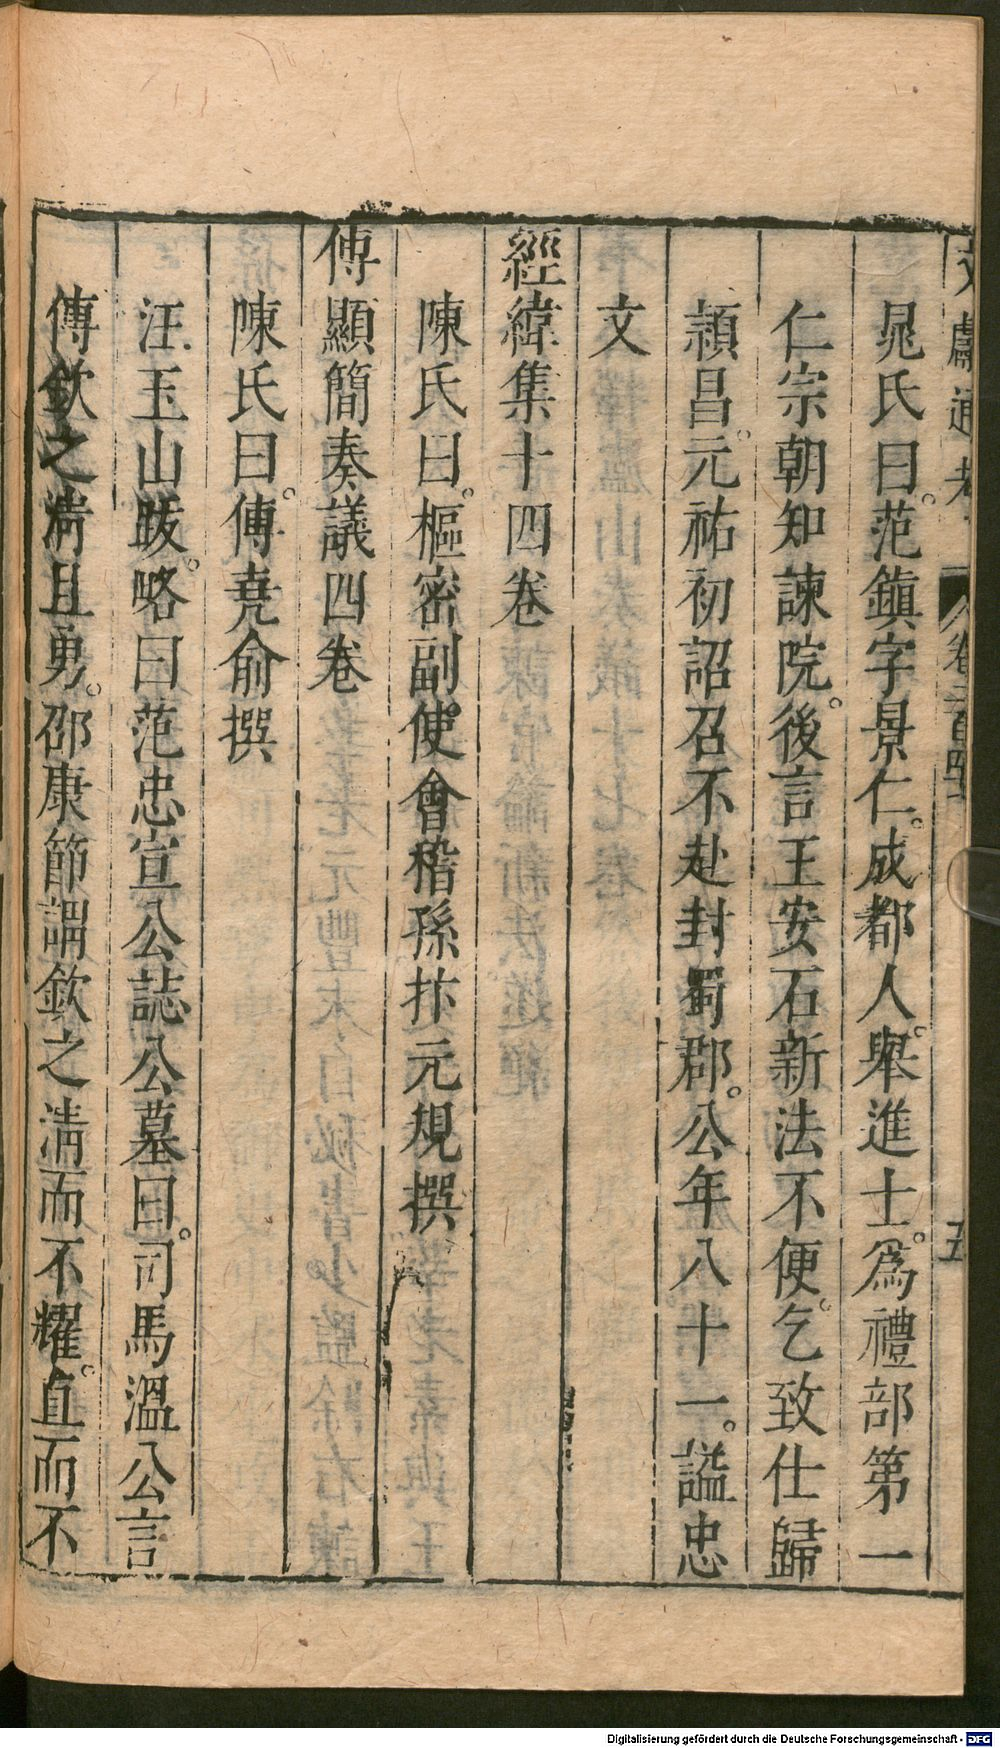 文獻通考 卷二百四 五
晁氏曰。范鎮字景仁。成都人。舉進士。爲禮部第一
仁宗朝知諫院。後言王安石新法不便。乞致仕歸
頴昌。元祐初詔召不赴封蜀郡。公年八十一。謚忠
文
經緯集十四卷
陳氏曰。樞密副使會稽孫抃元規撰
傅顯簡奏議四卷
陳氏曰。傅堯俞撰
汪玉山跋。略曰范忠宣公誌公墓曰。司馬溫公言
傅欽之淸且勇。邵康節謂欽之淸而不耀。直而不
Digitalisierung gefördert durch die Deutsche Forschungsgemeinschaft - DFG